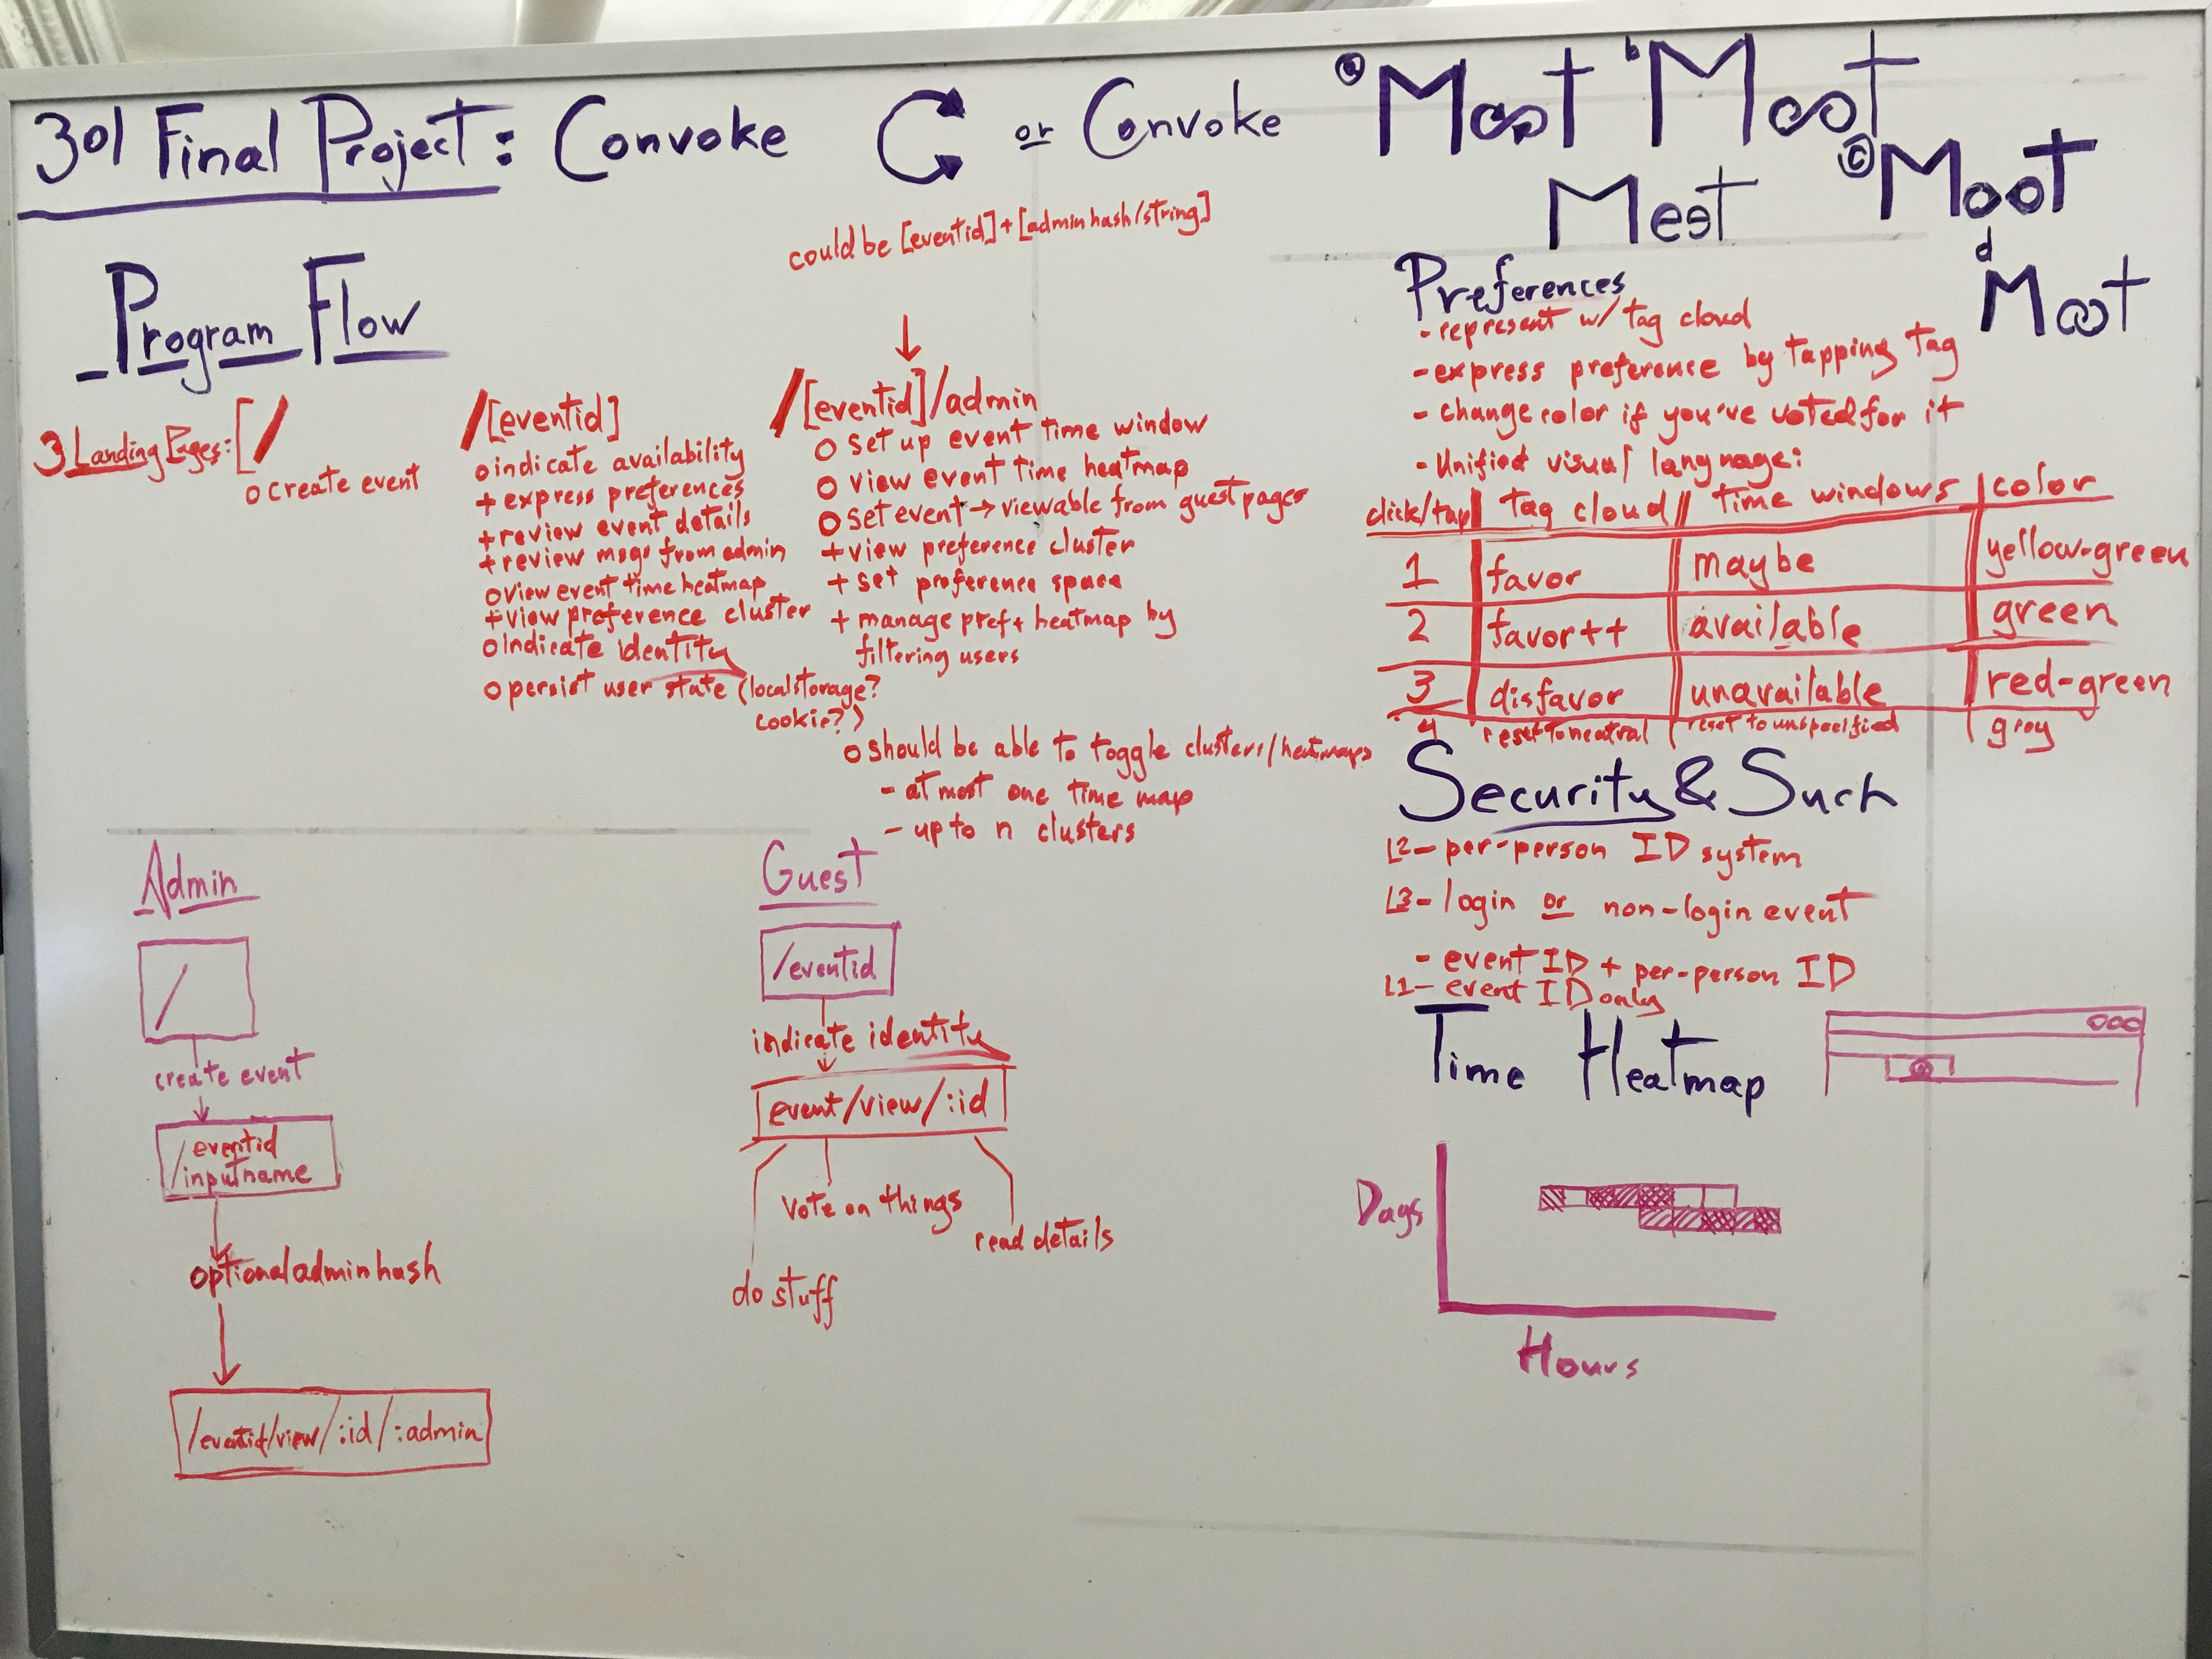 301 Final Project: Convoke
or Convoke
a Moot
b Moot
c Moot
d Moot
Meet
Program Flow
could be [eventid] + [admin hash/string]
3 Landing Pages: [/
o create event
/[eventid]
o indicate availability
+ express preferences
+ review event details
+ review msgs from admin
o view event time heatmap
+ view preference cluster
o Indicate identity
o persist user state (localstorage?
cookie?)
/[eventid]/admin
o set up event time window
o view event time heatmap
o set event → viewable from guest pages
+ view preference cluster
+ set preference space
+ manage pref + heatmap by
filtering users
o should be able to toggle clusters/heatmaps
- at most one time map
- up to n clusters
Preferences
- represent w/ tag cloud
- express preference by tapping tag
- change color if you've voted for it
- Unified visual language:
click/tap | tag cloud | time windows | color
1 | favor | maybe | yellow-green
2 | favor++ | available | green
3 | disfavor | unavailable | red-green
4 | reset to neutral | reset to unspecified | grey
Security & Such
L2- per-person ID system
L3- login or non-login event
- event ID + per-person ID
L1- event ID only
Time Heatmap
Days
Hours
Admin
/
create event
/eventid
/inputname
optional admin hash
/eventid/view/:id/:admin
Guest
/eventid
indicate identity
event/view/:id
vote on things
read details
do stuff